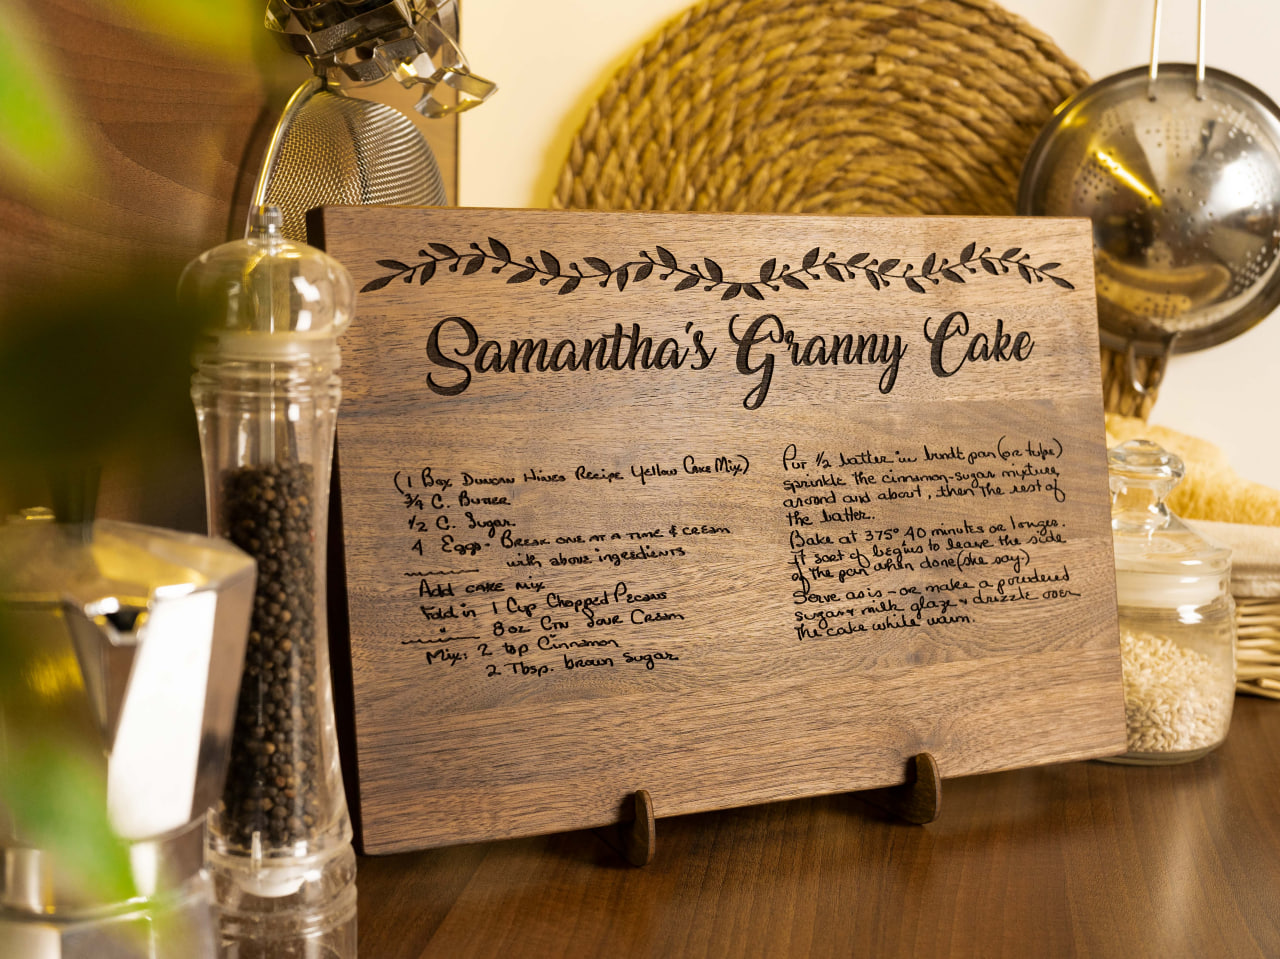 Samantha's Granny Cake
(1 Box Duncan Hines Recipe Yellow Cake Mix)
3/4 C. Butter
1/2 C. Sugar
4 Eggs - Break one at a time & cream
with above ingredients
Add cake mix
Fold in 1 Cup Chopped Pecans
" 8 oz Ctn Sour Cream
Mix: 2 tsp Cinnamon
2 Tbsp. brown sugar
Pur 1/2 batter in bundt pan (or tube)
sprinkle the cinnamon-sugar mixture
around and about, then the rest of
the batter.
Bake at 375° 40 minutes or longer.
It sort of begins to leave the side
of the pan when done (she say.)
Serve as is - or make a powdered
sugar & milk glaze & drizzle over
the cake while warm.